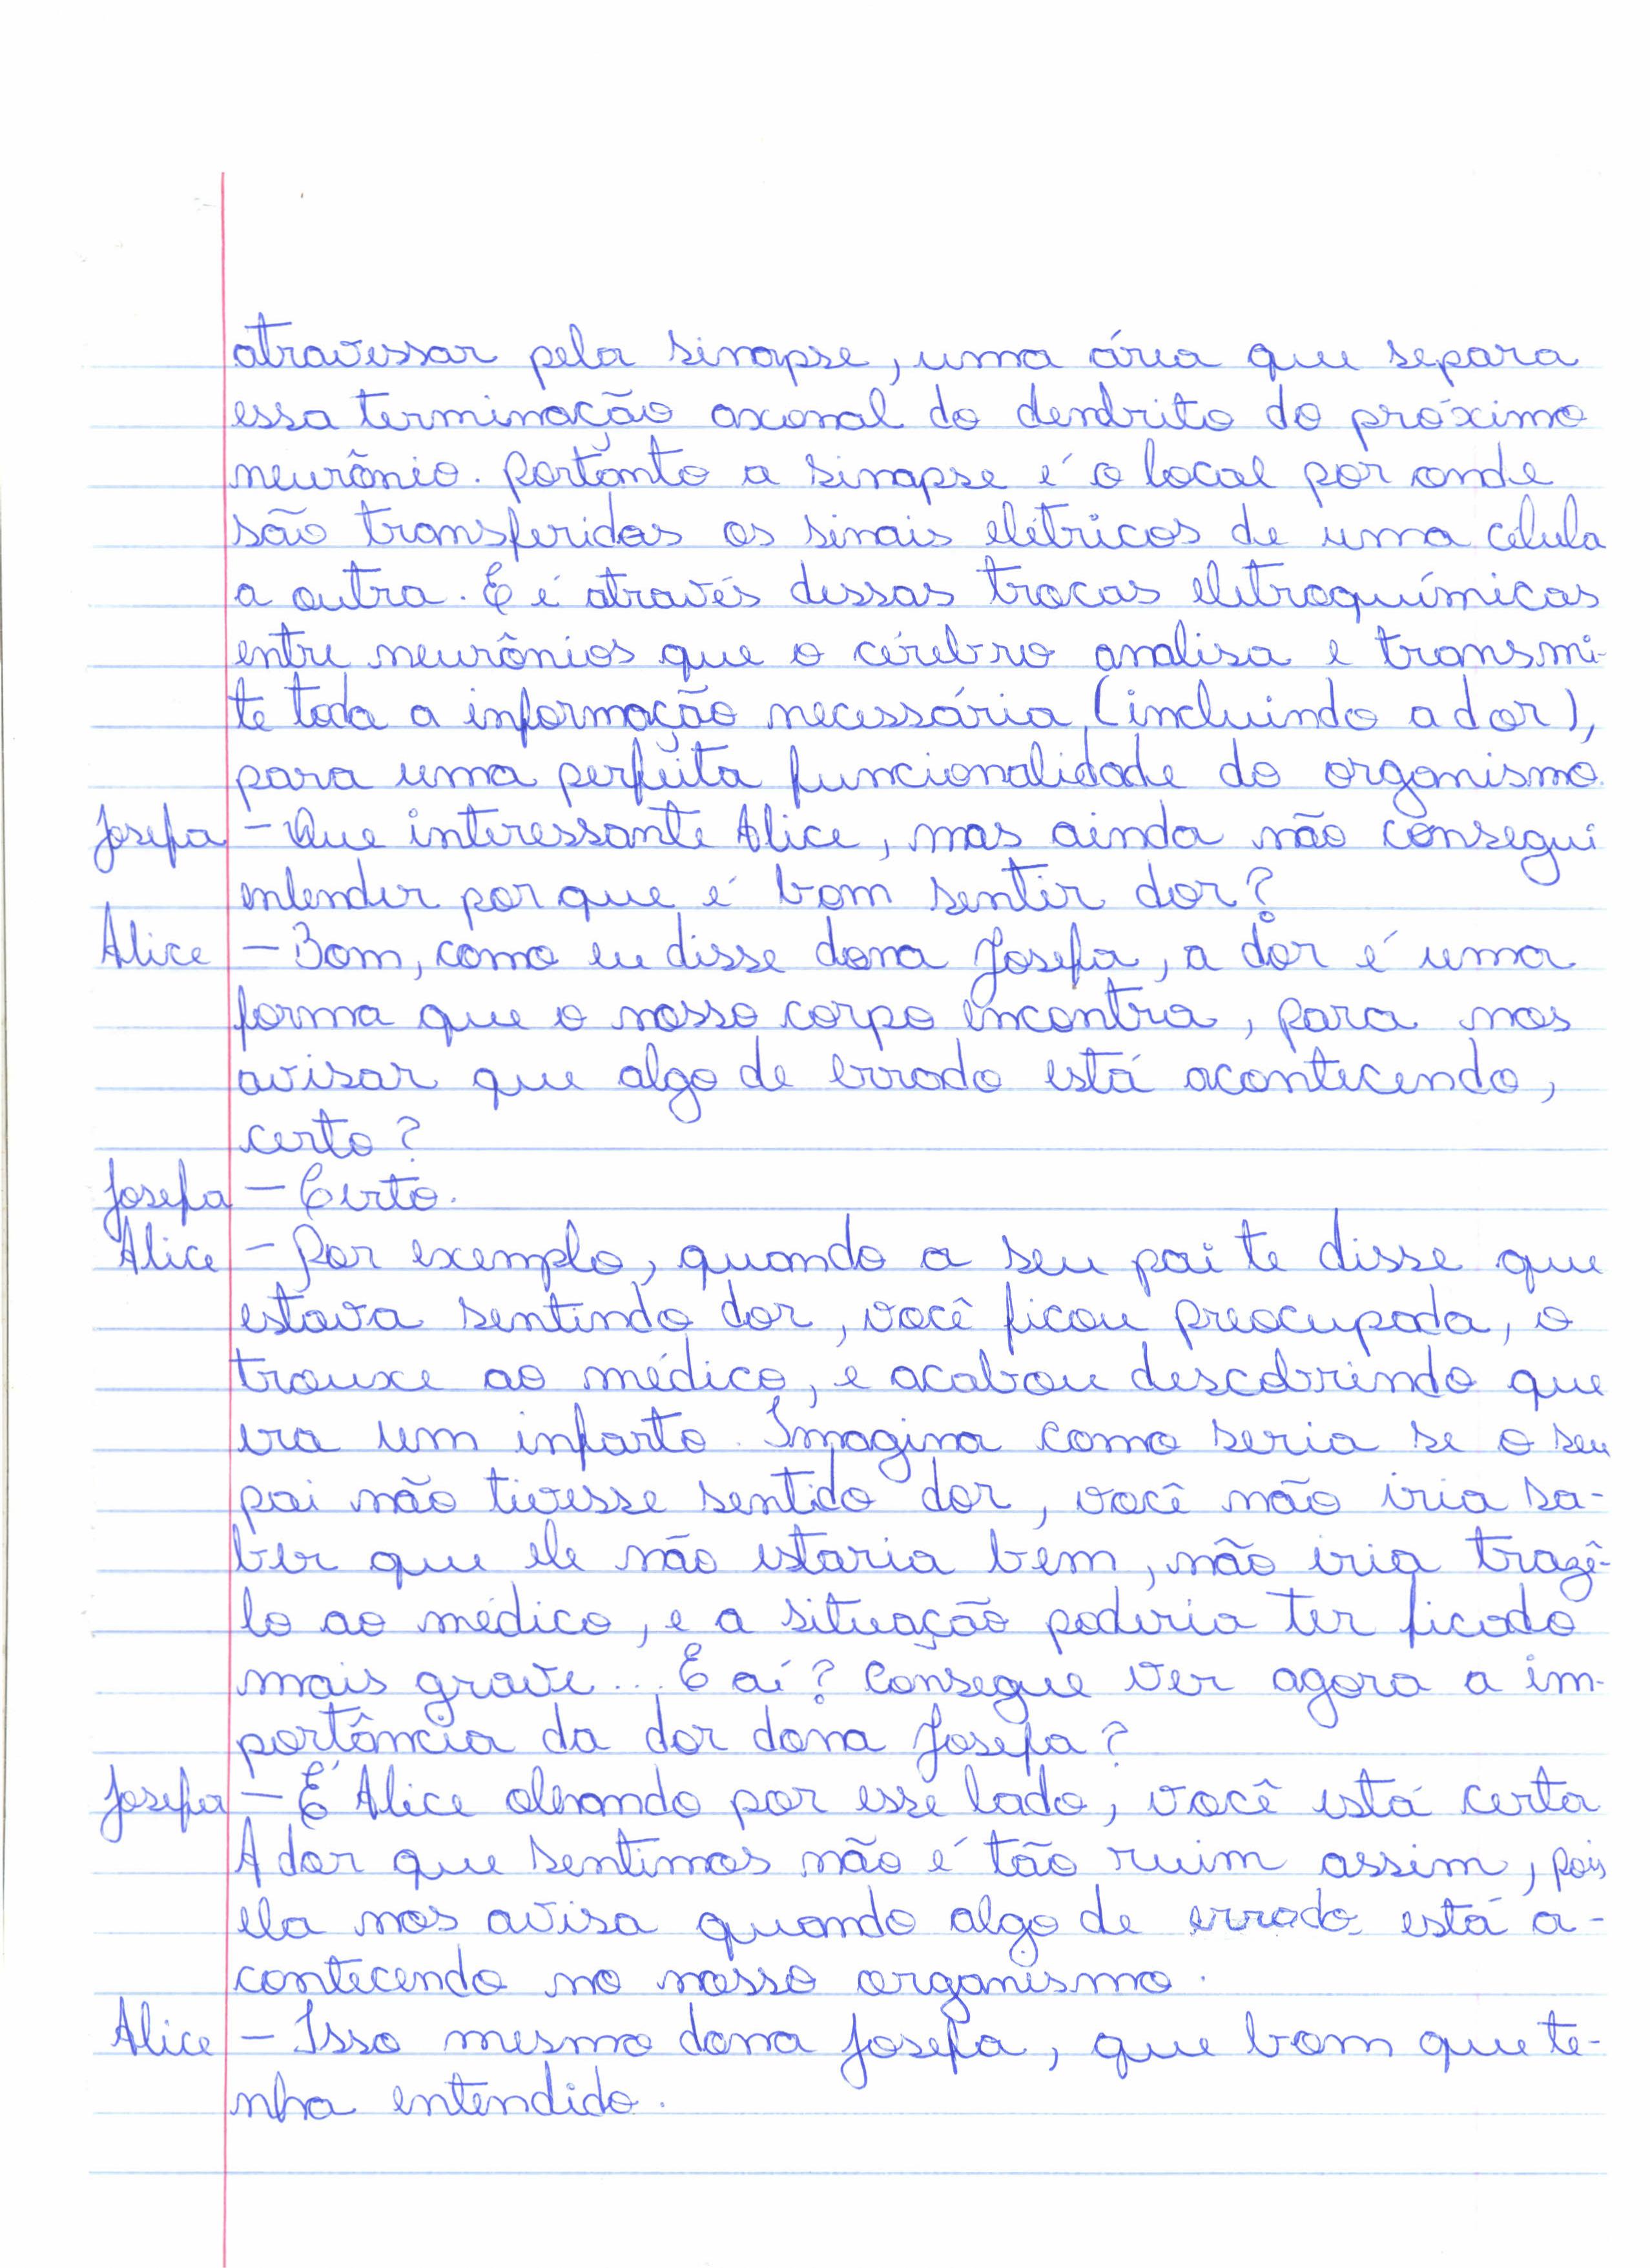 atravessar pela sinapse, uma área que separa
essa terminação axonal do dendrito do próximo
neurônio. Portanto a sinapse é o local por onde
são transferidas os sinais elétricos de uma célula
a outra. E é através dessas trocas eletroquímicas
entre neurônios que o cérebro analisa e transmi-
te toda a informação necessária (incluindo a dor),
para uma perfeita funcionalidade do organismo.
Josefa - Que interessante Alice, mas ainda não consegui
entender por que é bom sentir dor?
Alice - Bom, como eu disse dona Josefa, a dor é uma
forma que o nosso corpo encontra, para nos
avisar que algo de errado está acontecendo,
certo?
Josefa - Certo.
Alice - Por exemplo, quando o seu pai te disse que
estava sentindo dor, você ficou preocupada, o
trouxe ao médico, e acabou descobrindo que
era um infarto. Imagina como seria se o seu
pai não tivesse sentido dor, você não iria sa-
ber que ele não estaria bem, não iria trazê-
lo ao médico, e a situação poderia ter ficado
mais grave... E aí? Consegue ver agora a im-
portância da dor dona Josefa?
Josefa - É Alice olhando por esse lado, você está certa
A dor que sentimos não é tão ruim assim, pois
ela nos avisa quando algo de errado está a-
contecendo no nosso organismo.
Alice - Isso mesmo dona Josefa, que bom que te-
nha entendido.